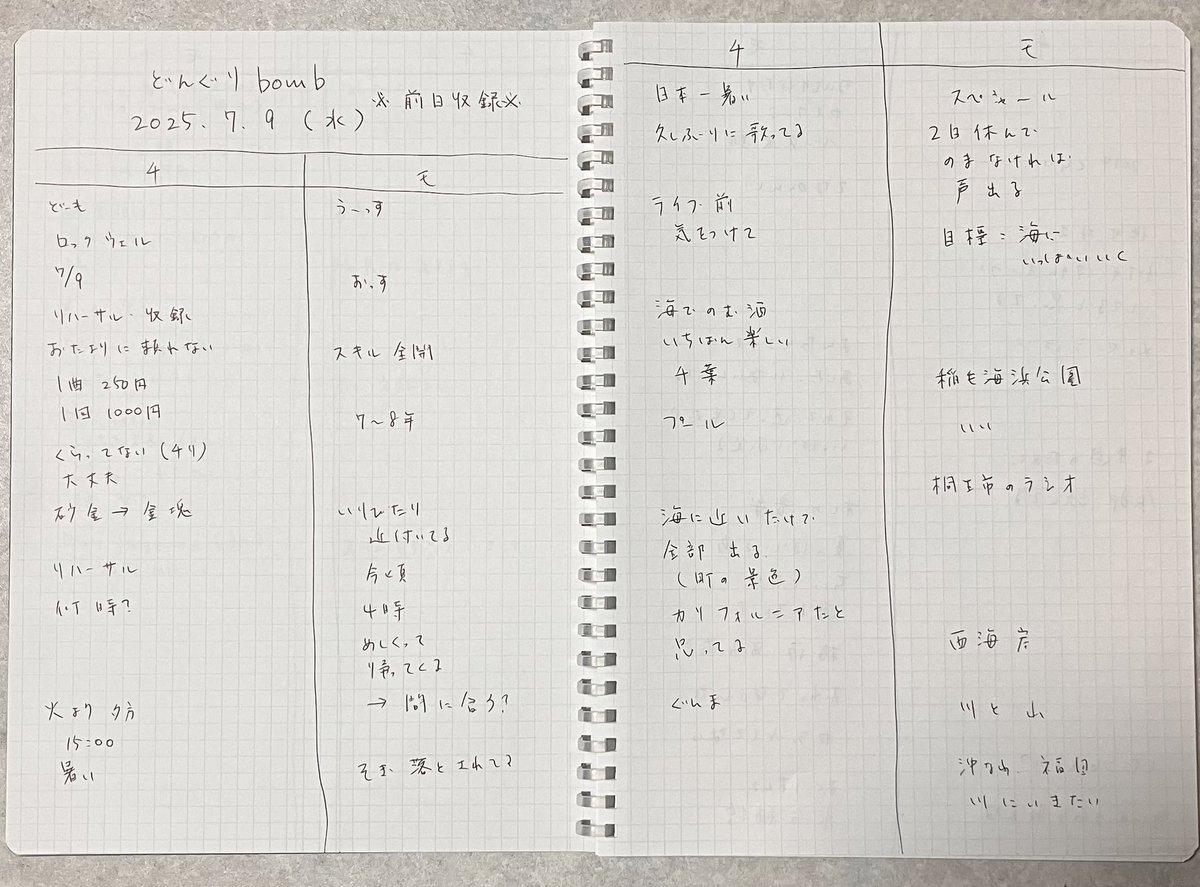 どんぐり bomb
2025. 7. 9 (水) ※前日収録※
チ
モ
どーも
うーっす
ロックウェル
7/9
おっす
リハーサル・収録
おたよりに頼れない
スキル全開
1曲 250円
1回 1000円
7〜8年
くらってない (チリ)
大丈夫
砂金→金塊
いりびたり
近付いてる
リハーサル
今と頃
何時?
4時
めしくって
帰ってくる
→ 間に合う?
火より 夕方
15:00
暑い
落とされてる
チ
モ
日本一暑い
スペシャール
久しぶりに歌ってる
2日休んで
のまなければ
声出る
ライブ前
気をつけて
目標:海に
いっぱいいく
海でのむ酒
いちばん楽しい
千葉
稲毛海浜公園
プール
いい
桐生市のラジオ
海に近いだけで
全部出る
(町の景色)
カリフォルニアだと
思ってる
西海岸
ぐんま
川と山
沖なわ、福岡
川にいきたい